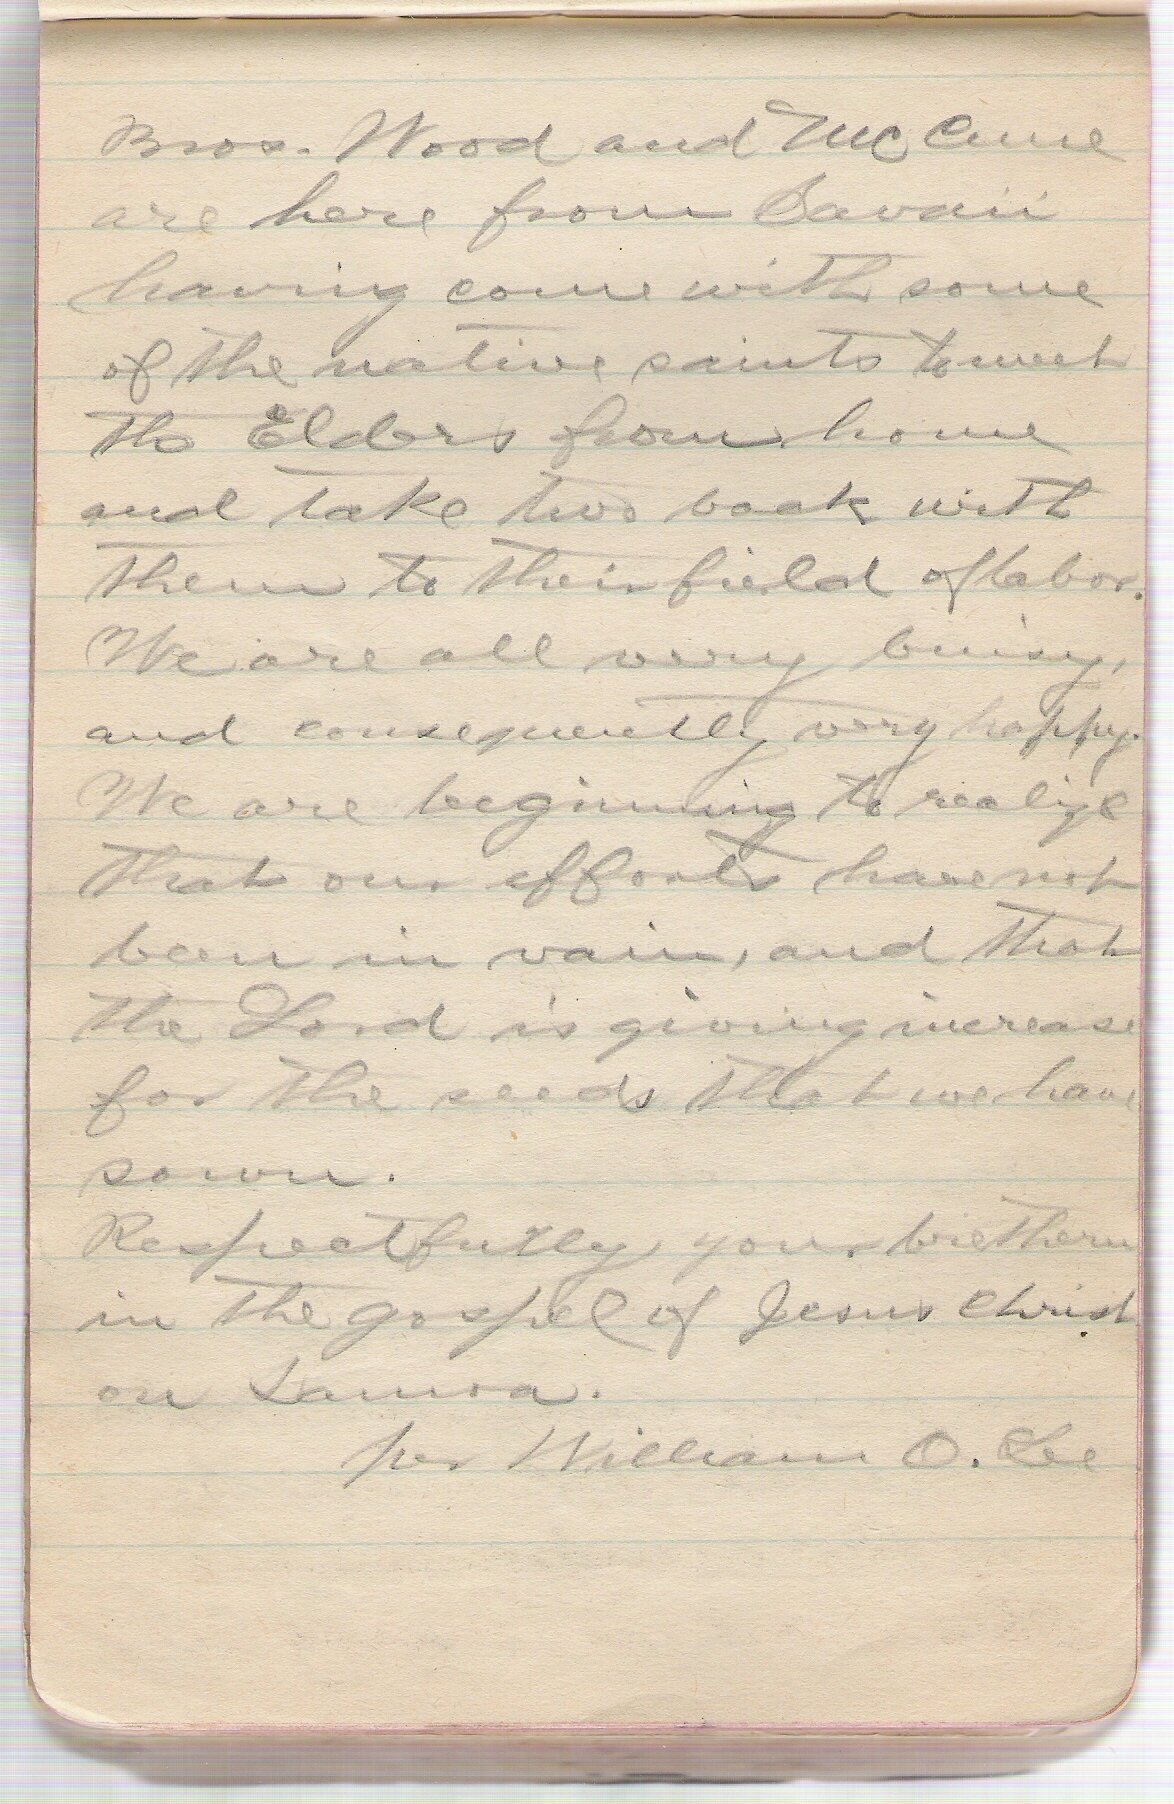 Bros. Wood and McCune
are here from Savaii
having come with some
of the native saints to meet
the Elders from home
and take two back with
them to their field of labor.
We are all very buisy,
and consequently very happy.
We are beginning to realize
that our efforts have not
been in vain, and that
the Lord is giving increase
for the seeds that we have
sown.
Respectfully, your brethern
in the gospel of Jesus Christ
on Samoa.
per William O. Lee